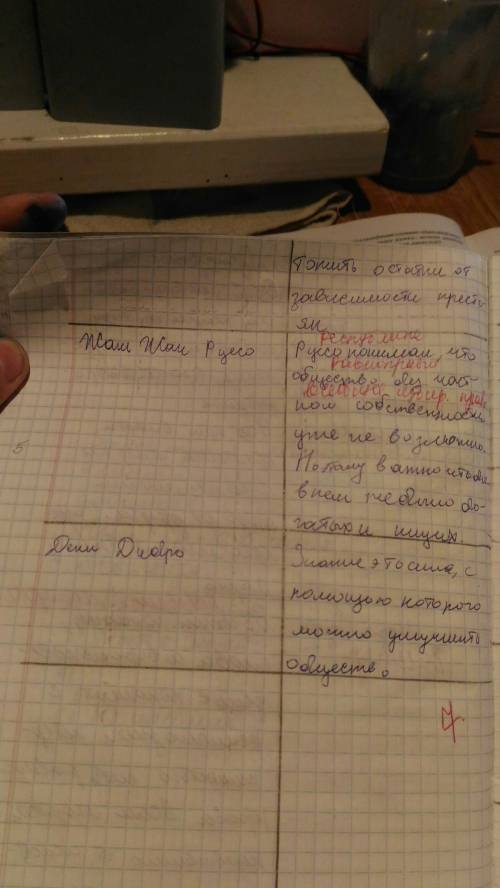 тожить остатки от
зависимости крестъ
ян.
Жан Жак Руссо
республика
Руссо понимал, что
равноправие
общество без част-
избир. право
ном собственности
уже не возможно.
Потому важно чтобы
в нем не было бо-
гатых и нищих.
5
Дени Дидро
Знание это сила, с
помощью которого
можно улучшить
общество.